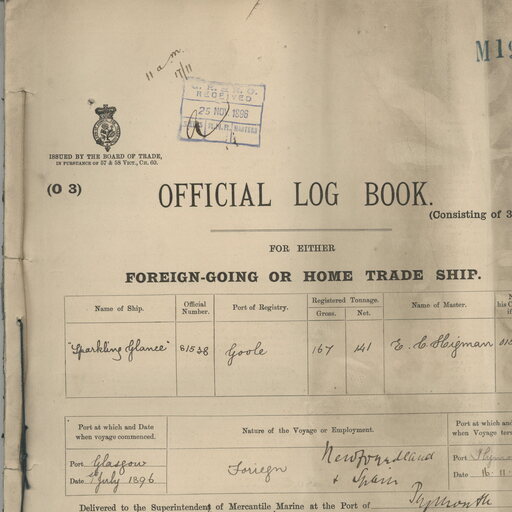 M19
11 a.m.
17/11
RECEIVED
25 NOV 1896
ISSUED BY THE BOARD OF TRADE,
IN PURSUANCE OF 57 & 58 VICT., CH. 60.
(O 3)
OFFICIAL LOG BOOK.
(Consisting of 3
FOR EITHER
FOREIGN-GOING OR HOME TRADE SHIP.
Name of Ship. Official Number. Port of Registry. Registered Tonnage. Gross. Net. Name of Master.
"Sparkling Glance" 81538 Goole 167 141 E. C. Higman
Port at which and Date when voyage commenced. Nature of the Voyage or Employment. Port at which and when Voyage ter
Port Glasgow Foriegn Newfoundland Port Plymo
Date July 1896 & Spain Date 16. 11.
Delivered to the Superintendent of Mercantile Marine at the Port of Plymouth